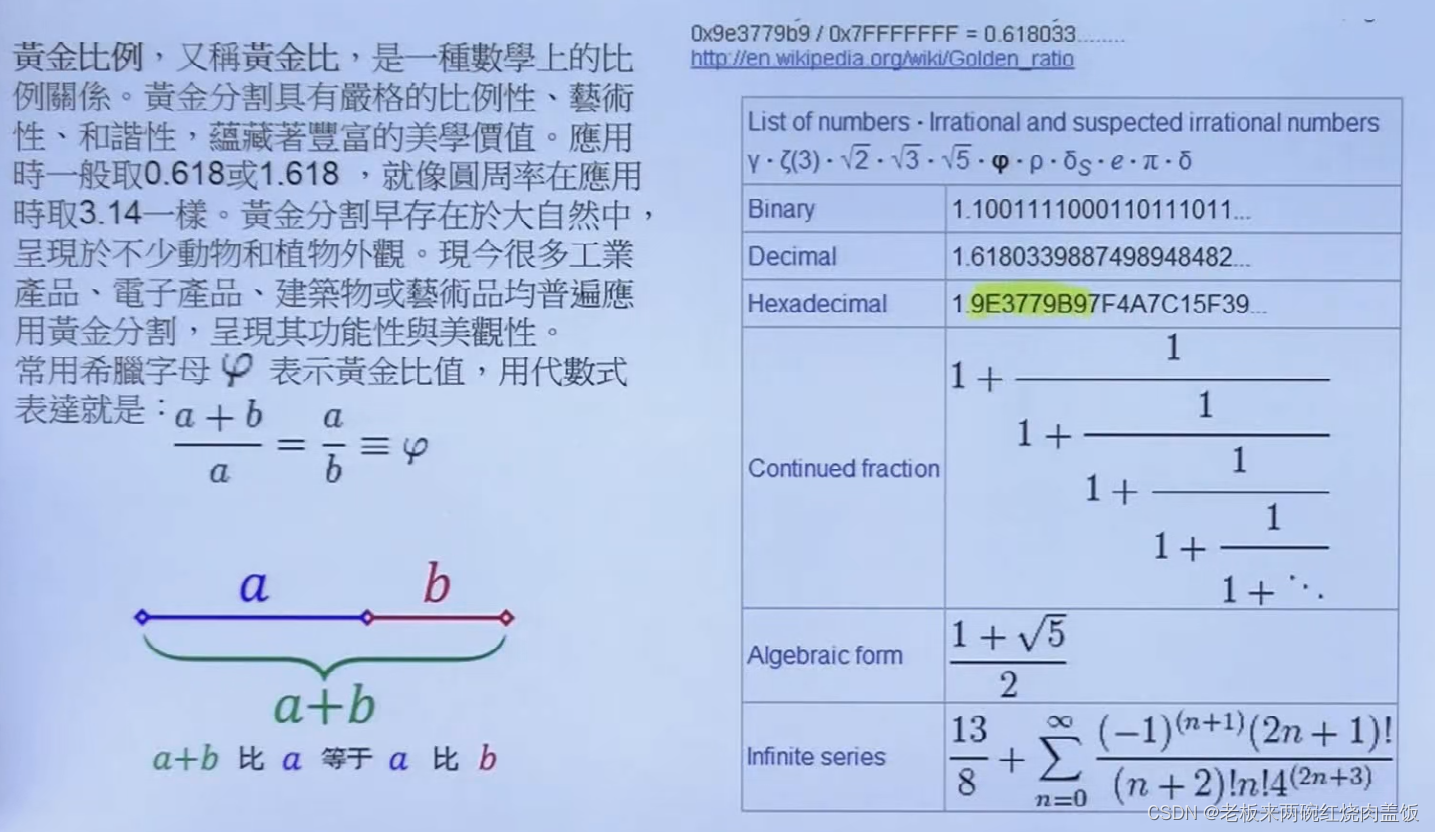 黃金比例，又稱黃金比，是一種數學上的比
例關係。黃金分割具有嚴格的比例性、藝術
性、和諧性，蘊藏著豐富的美學價值。應用
時一般取0.618或1.618 ，就像圓周率在應用
時取3.14一樣。黃金分割早存在於大自然中，
呈現於不少動物和植物外觀。現今很多工業
產品、電子產品、建築物或藝術品均普遍應
用黃金分割，呈現其功能性與美觀性。
常用希臘字母 φ 表示黃金比值，用代數式
表達就是：(a + b)/a = a/b ≡ φ
a
b
a+b
a+b 比 a 等于 a 比 b
0x9e3779b9 / 0x7FFFFFFF = 0.618033........
http://en.wikipedia.org/wiki/Golden_ratio
List of numbers · Irrational and suspected irrational numbers
γ · ζ(3) · √2 · √3 · √5 · φ · ρ · δS · e · π · δ
Binary 1.1001111000110111011...
Decimal 1.6180339887498948482...
Hexadecimal 1.9E3779B97F4A7C15F39...
Continued fraction 1 + 1/(1 + 1/(1 + 1/(1 + 1/(1 + ⋱))))
Algebraic form (1 + √5)/2
Infinite series 13/8 + ∑_{n=0}^{∞} (−1)^(n+1)(2n + 1)!/((n + 2)!n!4^(2n+3))
CSDN @老板来两碗红烧肉盖饭